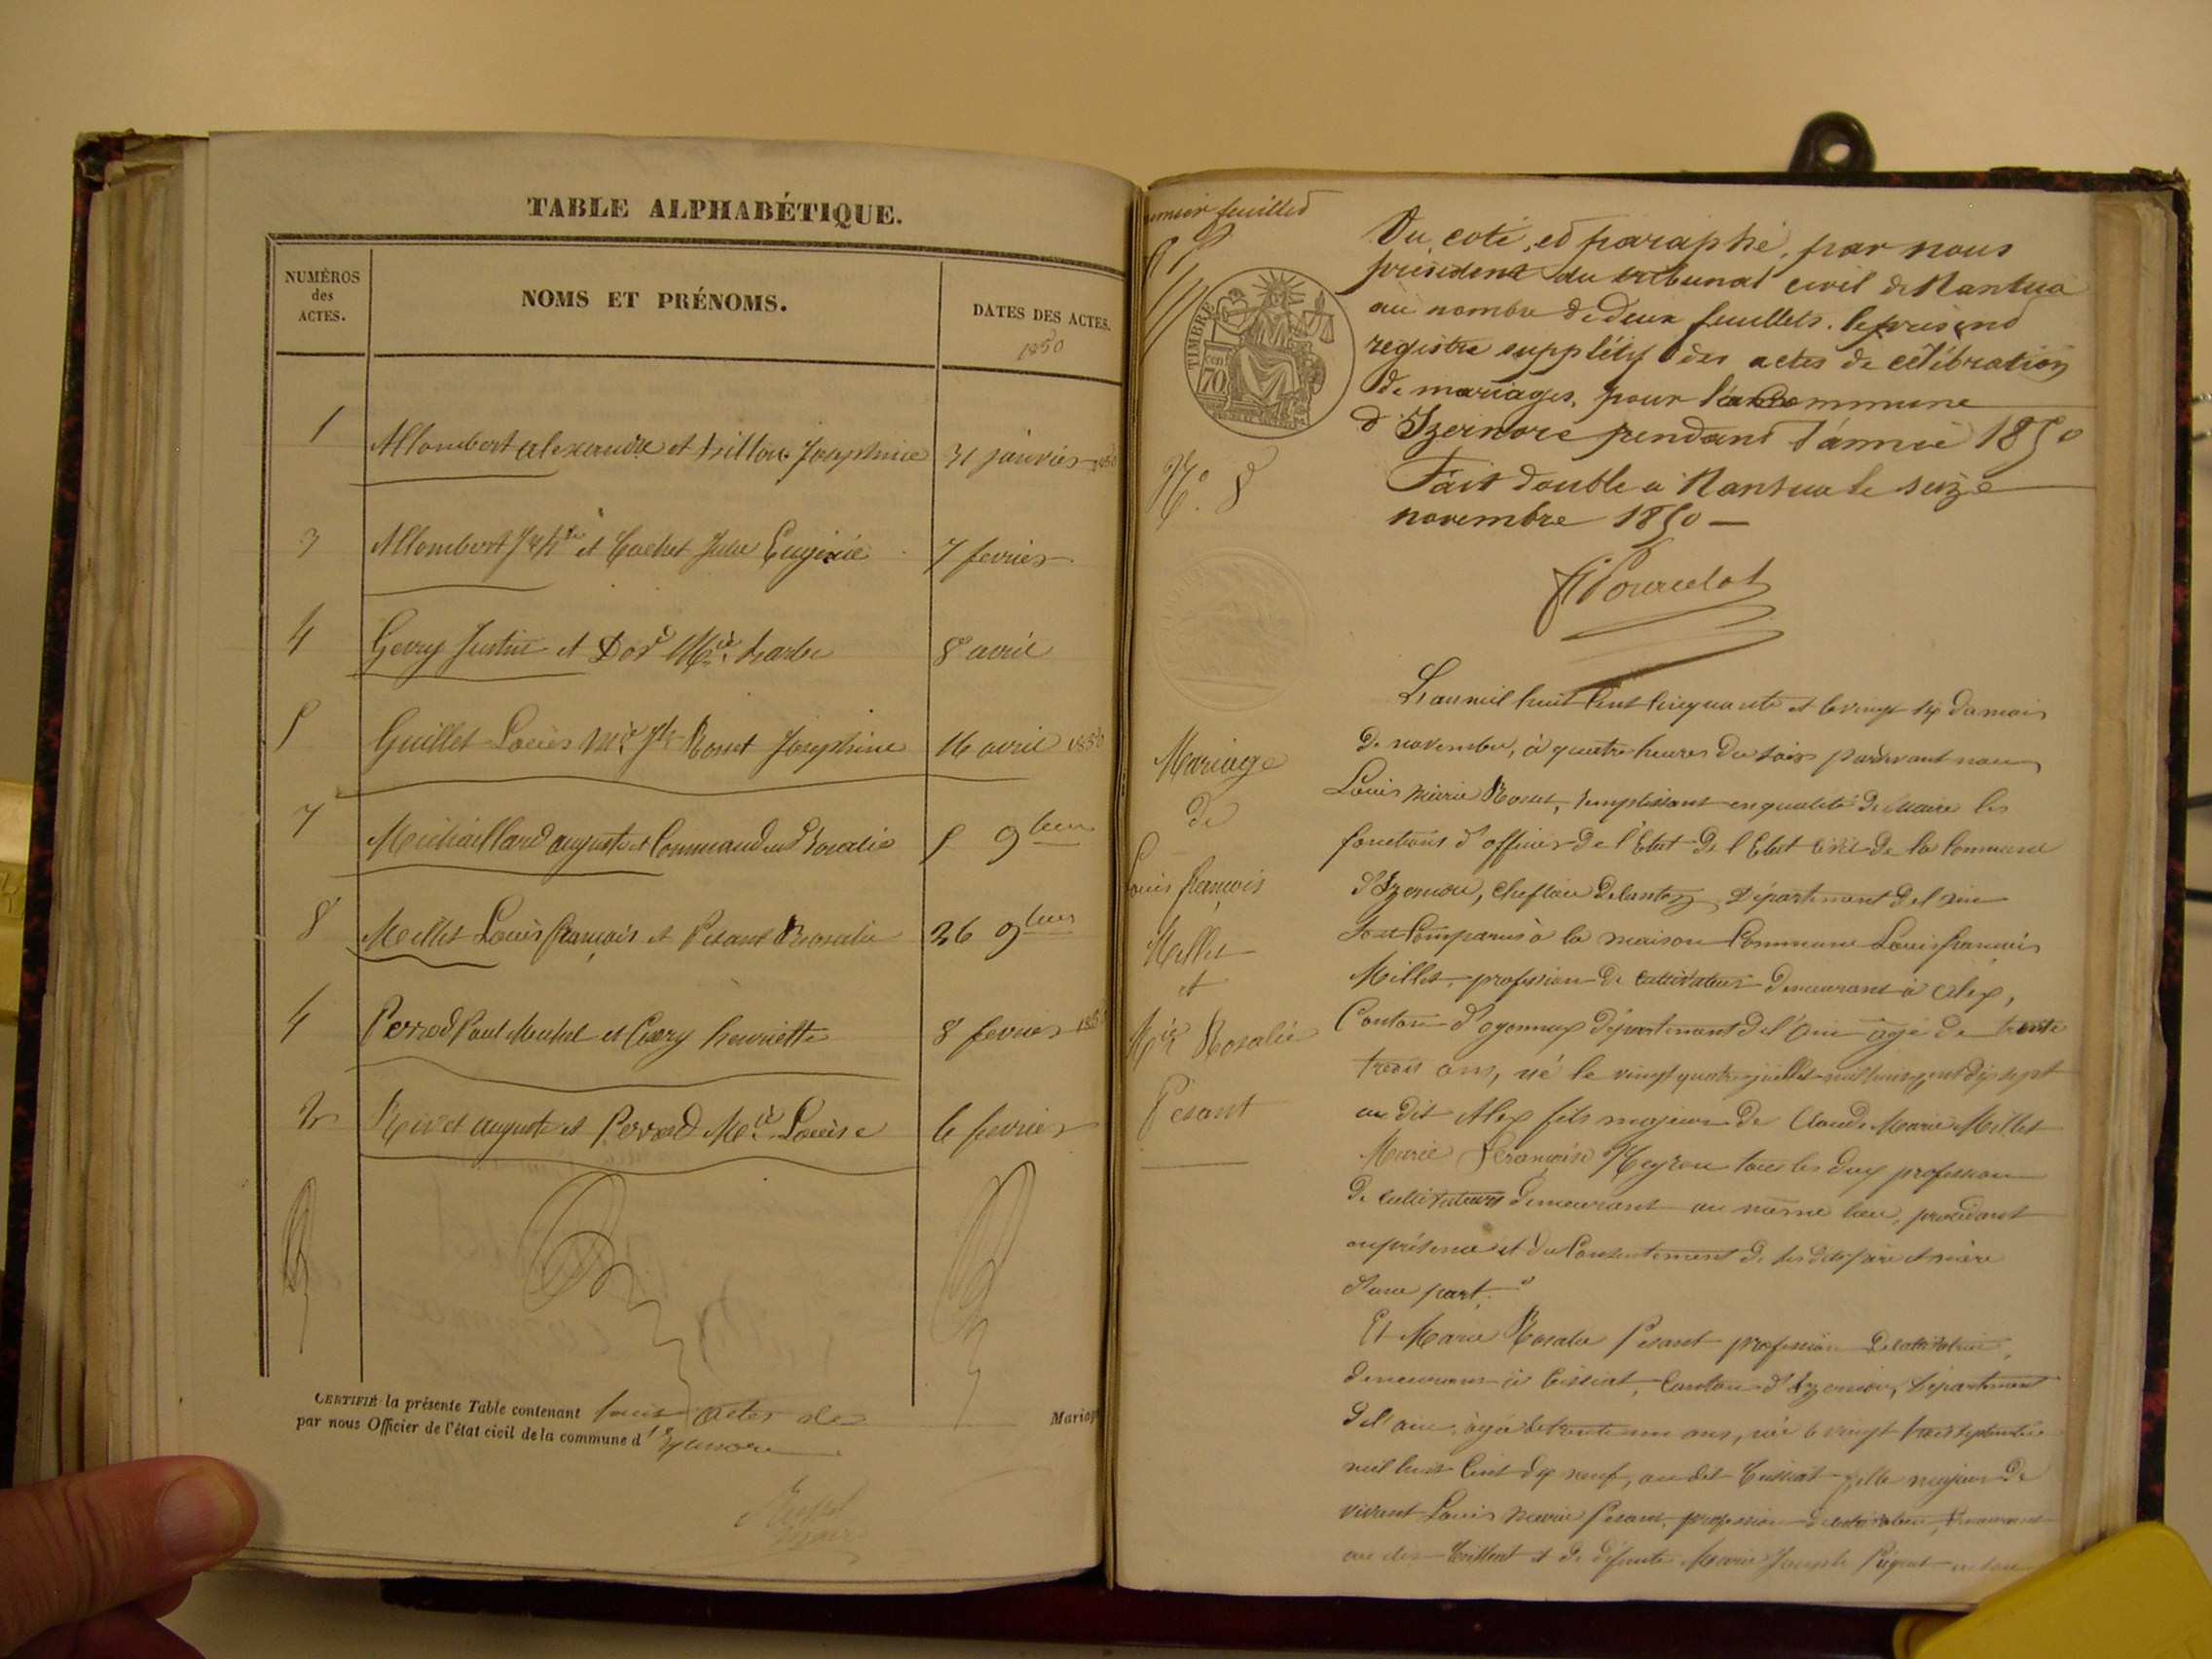 TABLE ALPHABÉTIQUE.
NUMÉROS
des
ACTES.
NOMS ET PRÉNOMS.
DATES DES ACTES.
1850
1 Allombert alexandre et Josephine 31 janvier 1850
3 Allombert et Cochet Julie Eugénie 7 fevrier
4 Gevry Justin et 8 avril
5 Guillet Louis Mie Jh Rosset Josephine 16 avril 1850
7 Michaillard auguste et Rosalie 5 9bre
8 Millet Louis françois et Pesant Rosalie 26 9bre
4 Perrod Paul Michel et henriette 8 fevrier 1850
2 auguste et Perrod Mie Louise 6 fevrier
CERTIFIÉ la présente Table contenant actes de Mariage
par nous Officier de l'état civil de la commune d'Izernore
maire
premier feuillet
TIMBRE
70 cent
Vu, coté, et paraphé, par nous
président du tribunal civil de Nantua
au nombre de deux feuillets. le présent
registre supplétif des actes de célébration
de mariages, pour la commune
d'Izernore pendant l'année 1850
Fait double à Nantua le seize
novembre 1850 —
Pourcelot
N.° 8
Mariage
de
Louis françois
Millet
et
Mie Rosalie
Pesant
L'an mil huit cent cinquante et le vingt six du mois
de novembre, à quatre heures du soir pardevant nous
Louis Marie Rosset, remplissant en qualité de maire les
fonctions d'officier de l'Etat de l'Etat civil de la commune
d'Izernore, chef lieu de canton, Département de l'ain
sont comparus à la maison commune Louis françois
Millet, profession de cultivateur demeurant à Alex,
Canton d'oyonnax département de l'ain âgé de trente
trois ans, né le vingt quatre juillet mil huit cent dix sept
au dit Alex fils majeur de Claude Marie Millet
Marie Françoise tous les deux profession
de cultivateurs demeurant au même lieu, procédant
en présence et du consentement de ses dits père et mère
d'une part.
Et Marie Rosalie Pesant profession de cultivatrice,
demeurant à Ceissiat, Canton d'Izernore, Département
de l'ain, âgée de trente un ans, née le vingt trois septembre
mil huit cent dix neuf, au dit Ceissiat fille majeure de
vivant Louis Marie Pesant, profession de cultivateur, demeurant
au dit Ceissiat et de défunte Marie Josephe